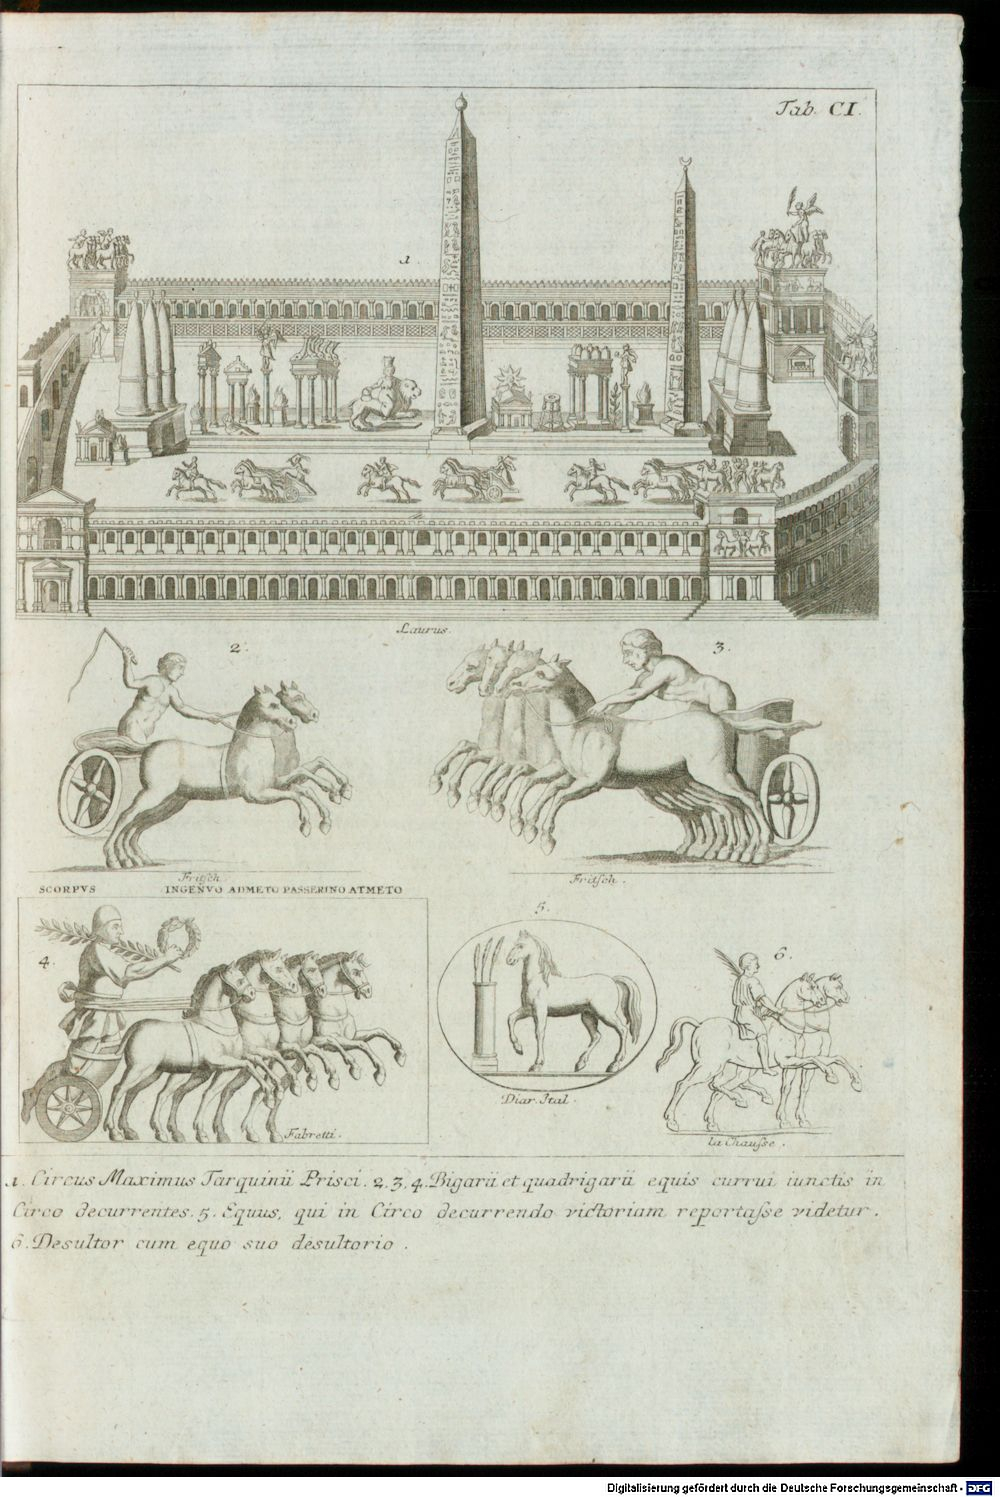 Tab. CI.
1.
Laurus.
2.
3.
Fritſch.
Fritſch.
SCORPVS INGENVO ADMETO PASSERINO ATMETO
4.
5.
6.
Fabretti.
Diar. Ital.
la Chauſse.
1. Circus Maximus Tarquinii Prisci. 2. 3. 4. Bigarii et quadrigarii equis currui iunctis in
Circo decurrentes. 5. Equus, qui in Circo decurrendo victoriam reportaſse videtur.
6. Desultor cum equo suo desultorio.
Digitalisierung gefördert durch die Deutsche Forschungsgemeinschaft - DFG